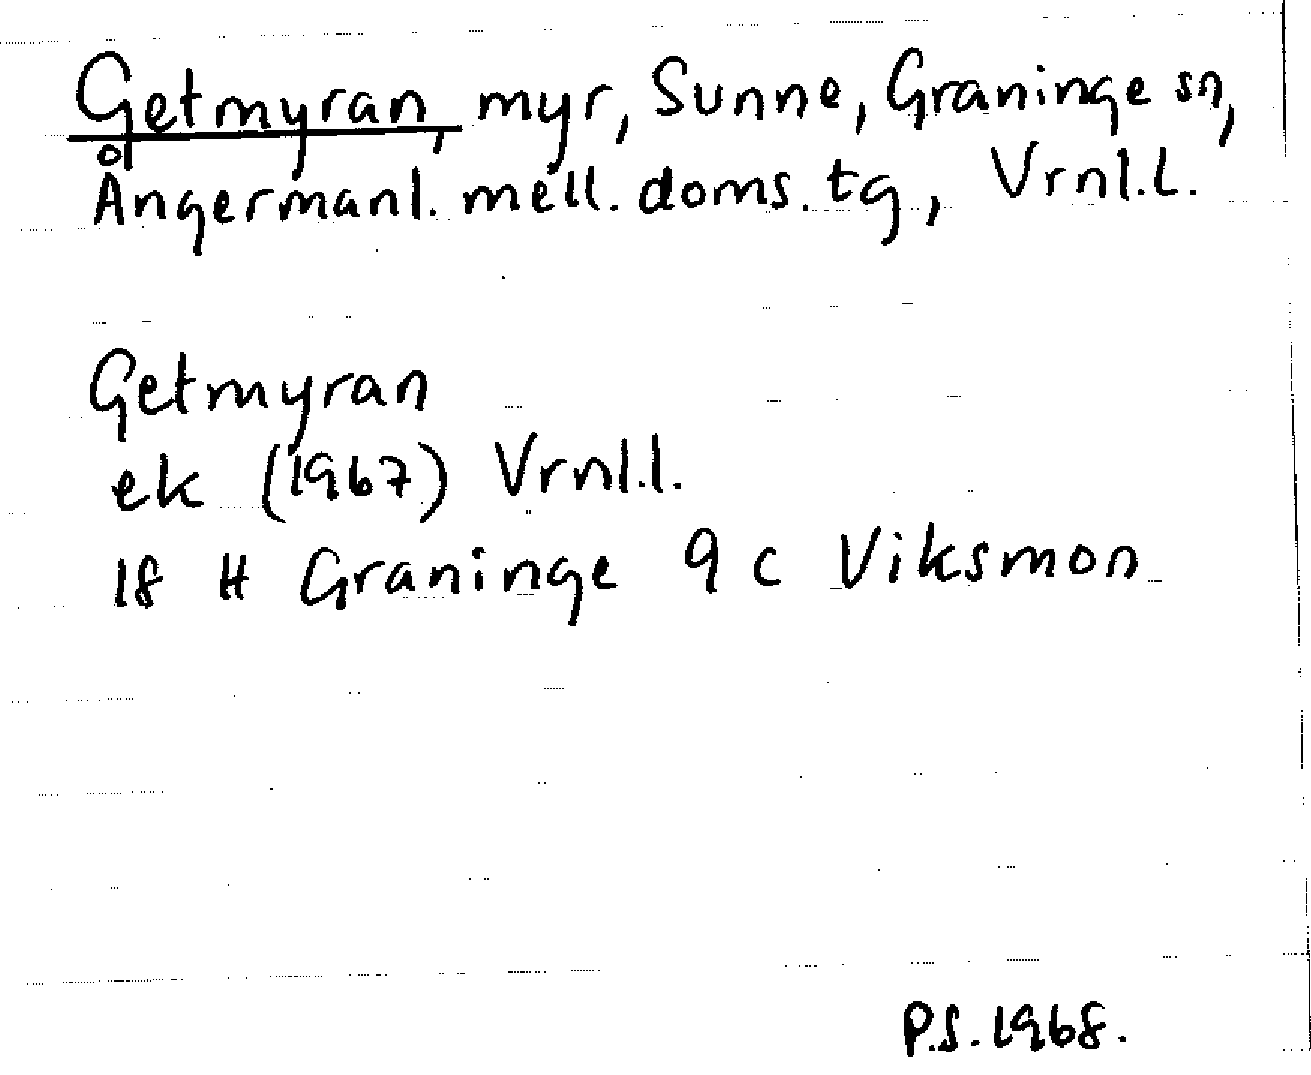 Getmyran, myr, Sunne, Graninge sn,
Ångermanl. mell. doms. tg, Vrnl.L.
Getmyran
ek (1967) Vrnl.l.
18 H Graninge 9 c Viksmon
P.S. 1968.